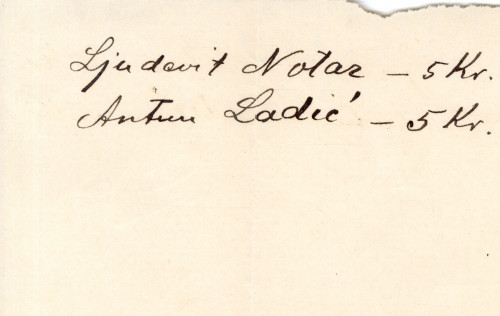 Ljudevit Notar – 5 Kr.
Antun Ladić – 5 Kr.